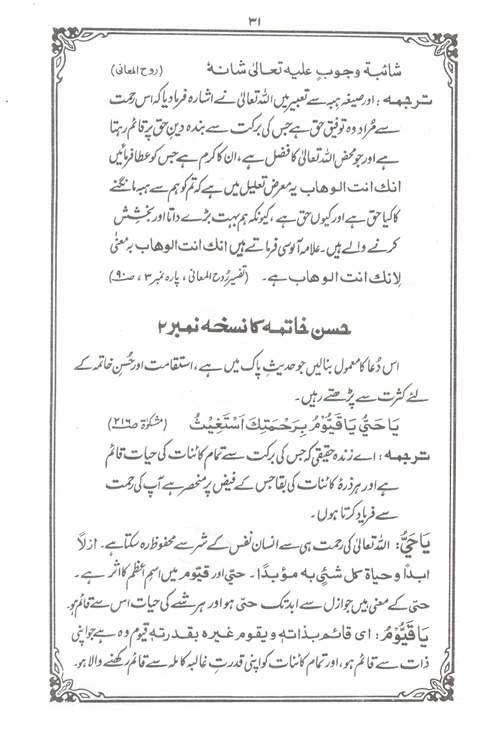 ۳۱
شائبة وجوب عليه تعالى شانهٗ (روح المعانی)
ترجمہ: اور صیغہ ہبہ سے تعبیر میں اللہ تعالیٰ نے اشارہ فرمادیا کہ اس رحمت
سے مُراد وہ توفیق حق ہے جس کی برکت سے بندہ دینِ حق پر قائم رہتا
ہے اور جو محض اللہ تعالیٰ کا فضل ہے، ان کا کرم ہے جس کو عطا فرمائیں
انك انت الوهاب یہ معرض تعلیل میں ہے کہ تم کو ہم سے ہبہ مانگنے
کا کیا حق ہے اور کیوں حق ہے، کیونکہ ہم بہت بڑے داتا اور بخشش
کرنے والے ہیں۔ علامہ آلوسی فرماتے ہیں انك انت الوهاب بہ معنٰی
لانك انت الوهاب ہے۔ (تفسیر رُوح المعانی، پارہ نمبر ۳، صـ۹۰)
حسن خاتمہ کا نسخہ نمبر ۲
اس دُعا کا معمول بنالیں جو حدیثِ پاک میں ہے، استقامت اور حُسنِ خاتمہ کے
لئے کثرت سے پڑھتے رہیں۔
يَا حَيُّ يَا قَيُّوْمُ بِرَحْمَتِكَ اَسْتَغِيْثُ (مشکوٰۃ صـ۲۱۶)
ترجمہ: اے زندہ حقیقی کہ جس کی برکت سے تمام کائنات کی حیات قائم
ہے اور ہر ذرۂ کائنات کی بقا جس کے فیض پر منحصر ہے آپ کی رحمت
سے فریاد کرتا ہوں۔
يَا حَيُّ: اللہ تعالیٰ کی رحمت ہی سے انسان نفس کے شر سے محفوظ رہ سکتا ہے۔ ازلاً
ابداً وحياة كل شئي به مؤبداً۔ حيّ اور قیّوم میں اسمِ اعظم کا اثر ہے۔
حیّ کے معنی ہیں جو ازل سے ابد تک حیّ ہو اور ہر شے کی حیات اس سے قائم ہو۔
يَا قَيُّوْمُ: اى قائم بذاته ويقوم غيره بقدرته قیّوم وہ ہے جو اپنی
ذات سے قائم ہو، اور تمام کائنات کو اپنی قدرتِ غالبہ کاملہ سے قائم رکھنے والا ہو۔